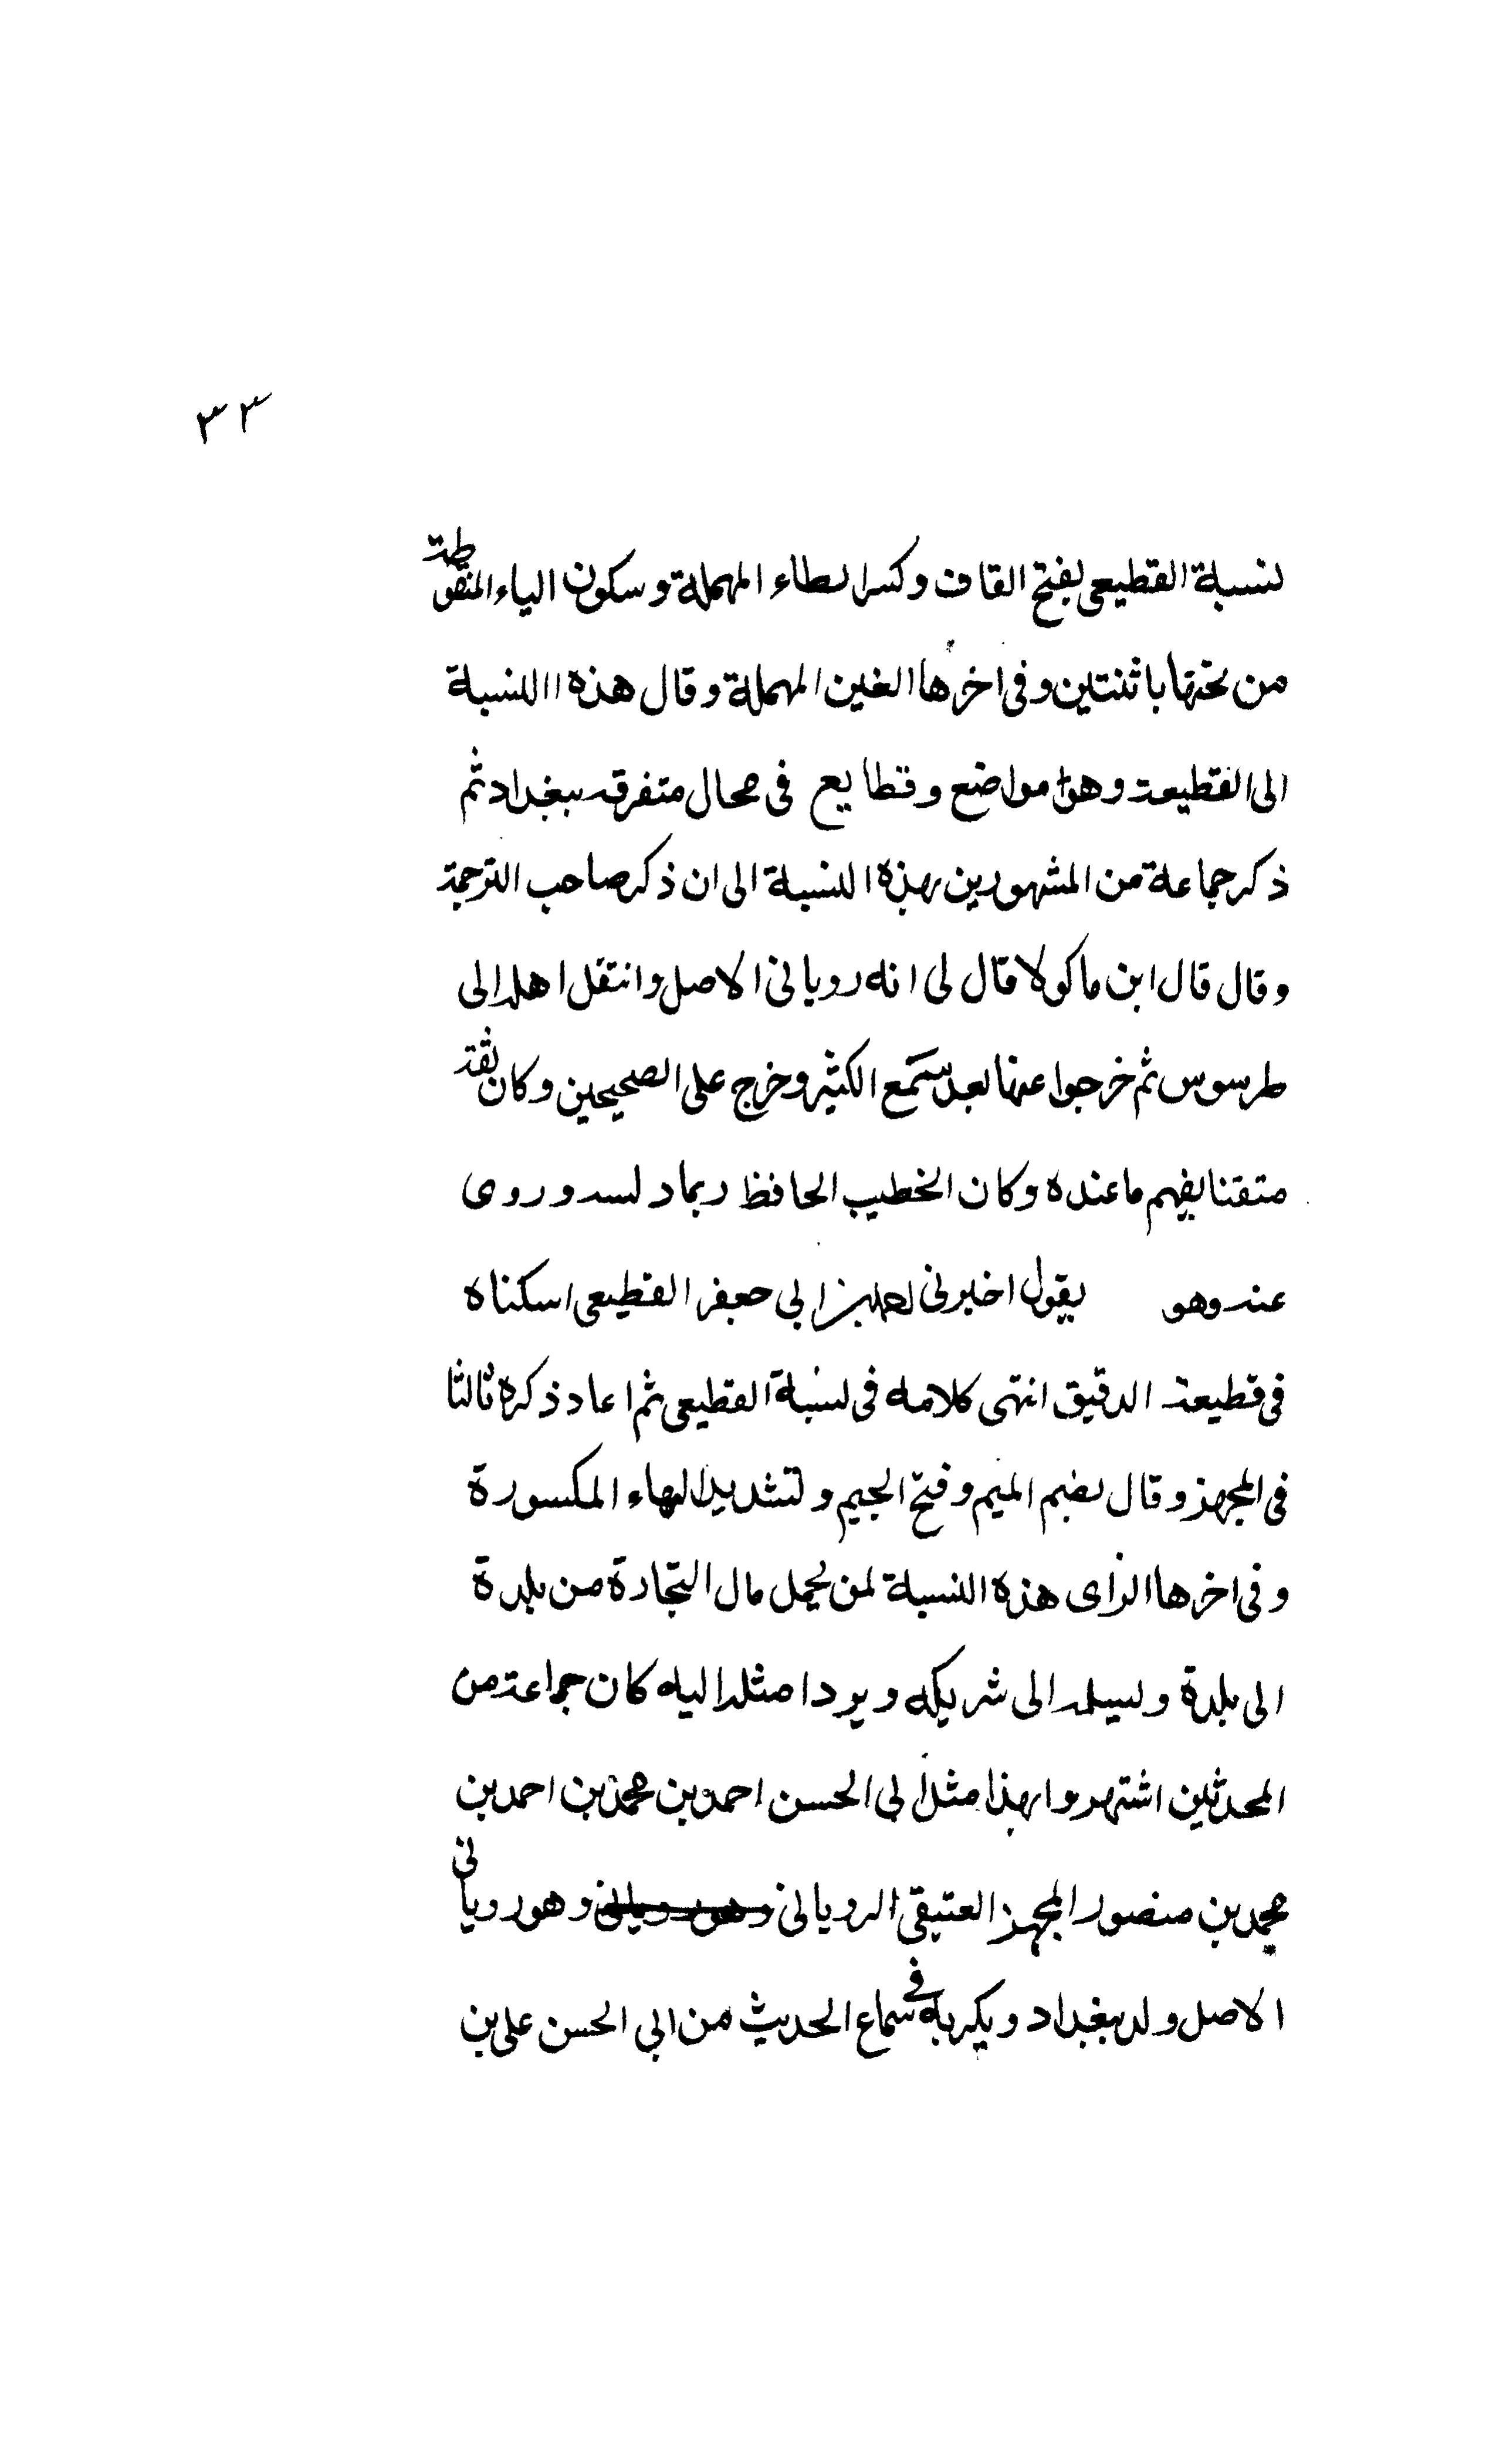 ٣٣
نسبة القطيعى بفتح القاف وكسر الطاء المهملة وسكون الياء المنقوطة
من تحتها باثنتين وفى اخرها الغين المهملة وقال هذه االنسبة
الى القطيعة وهى مواضع وقطايع فى محال متفرقه ببغداد ثم
ذكر جماعة من المشهورين بهذه النسبة الى ان ذكر صاحب الترجمة
وقال قال ابن ماكولا قال لى انه رويانى الاصل وانتقل اهله الى
طرسوس ثم خرجوا عنها بعد سمع الكثير وخرج على الصحيحين وكان ثقة
متقنا يفهم ما عنده وكان الخطيب الحافظ ربما دلسه وروى
عنه وهو يقول اخبرنى احمد بن ابى جعفر القطيعى اسكناه
فى قطيعة الدقيق انتهى كلامه فى نسبة القطيعى ثم اعاد ذكره ثالثا
فى المجهز وقال بضم الميم وفتح الجيم وتشديد الهاء المكسورة
وفى اخرها الزاى هذه النسبة لمن يحمل مال التجارة من بلدة
الى بلدة ويسلمه الى شريكه ويرد امثله اليه كان جماعة من
المحدثين اشتهروا بهذا مثل ابى الحسن احمد بن محمد بن احمد بن
محمد بن منصور المجهز العتيقى الرويانى وهو رويانى
الاصل ولد ببغداد وبكر به فى سماع الحديث من ابى الحسن على بن